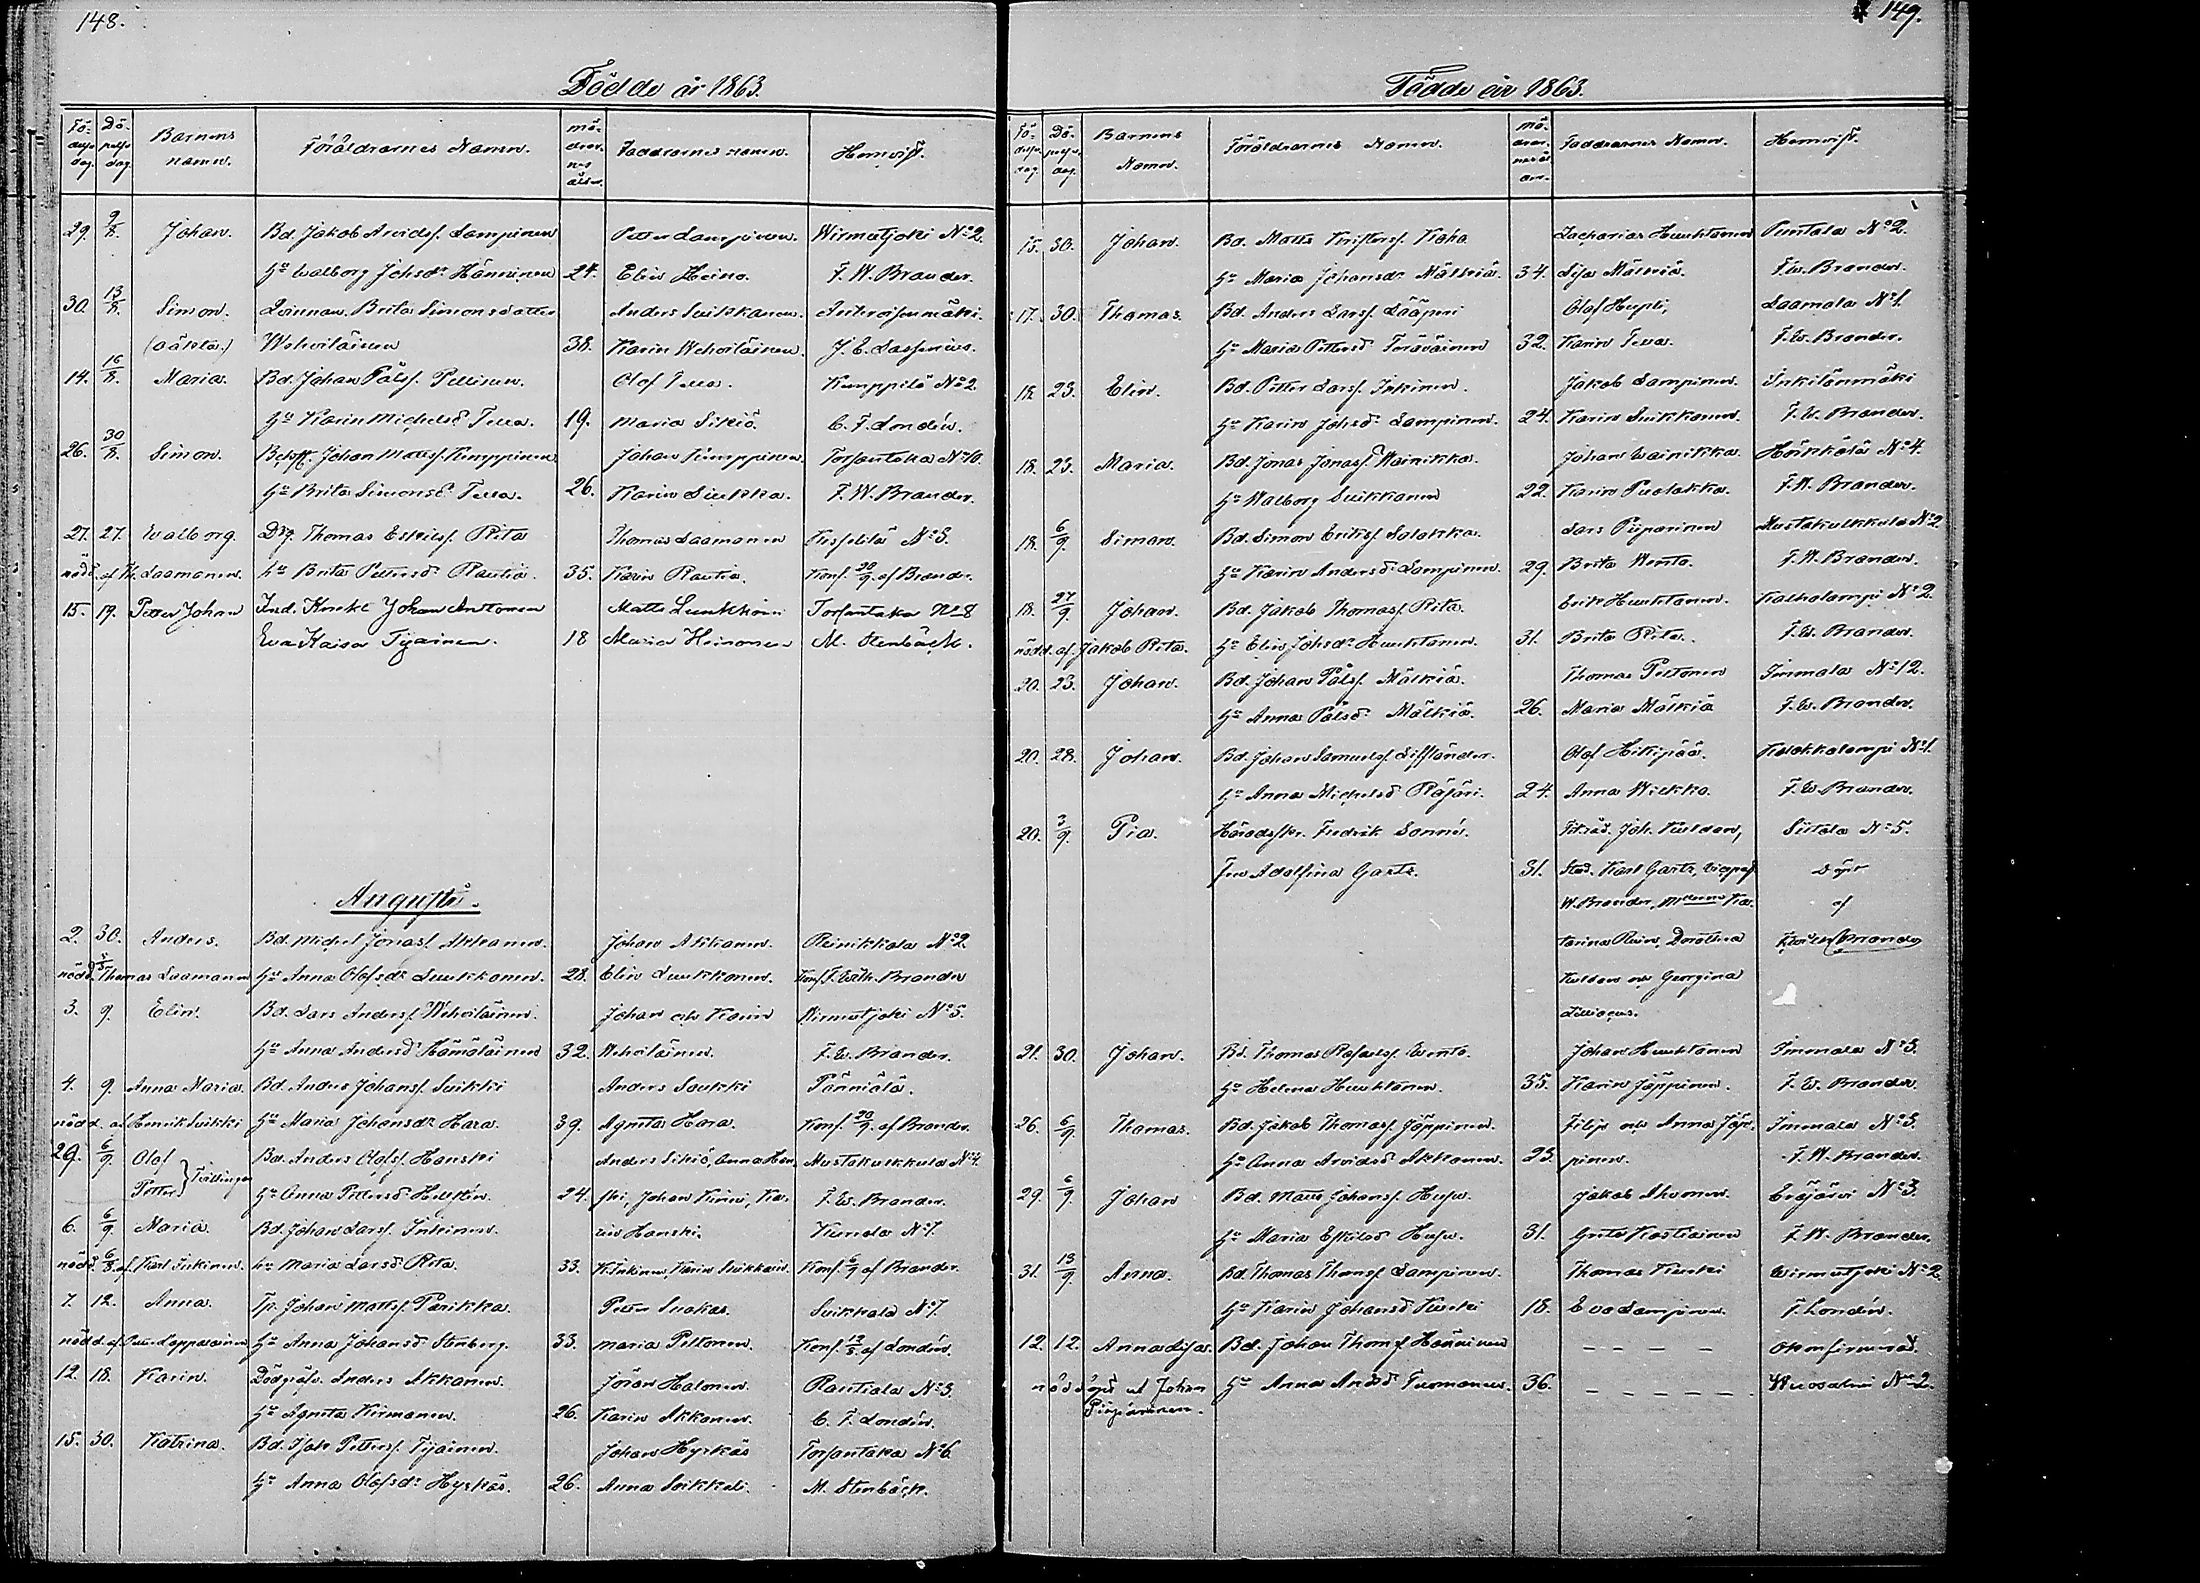 148.
Födde år 1863.
Fö-
delse
dag.
Dö-
pelse
dag.
Barnens
namn.
Föräldrarnes Namn.
mö-
drar-
nes
ålder.
Faddrarnes namn.
Hemvist.
29. 9/8. Johan. Bd. Jakob Arvidss. Lampinen Petter Lampinen. Wirmutjoki No 2.
Hu Walborg Johsdr Hänninen 24. Elin Heino. F. W. Brander.
30. 13/8. Simon. Qvinnan Brita Simonsdotter Anders Suikkanen.
(oäkta.) Wehviläinen 38. Karin Wehviläinen.
14. 16/8. Maria. Bd. Johan Pålss. Pellinen. Olof Terva. Kumppila No 2.
Hu Karin Michelsd. Terva. 19. Maria Sikiö. C. F. Londén.
26. 30/8. Simon. Johan Matss. Kumppinen Johan Kumppinen Torsantaka No 10.
Hu Brita Simonsd. Terva. 26. Karin Siukka. F. W. Brander.
27. 27. Walborg. Drg. Thomas Eskilss. Rita Thomas Laamanen No 3.
nödd. af Th. Laamanen. hu Brita Pettersdr Rautia. 35. Karin Rautia. Konf. 20/9 af Brander.
15. 19. Petter Johan Ind. Johan Antonen Matts Torsantaka No 8
Eva Kaisa Tijainen. 18 Maria Heinonen M. Stenbäck.
Augusti.
2. 30. Anders. Bd. Michel Jonass. Akkanen. Johan Akkanen. Reinikkala No 2
nödd. Thomas Laamanen Hu Anna Olofsdr Luukkonen. 28. Elin Luukkonen. Konf. F. Wilh. Brander
3. 9. Elin. Bd. Lars Anderss. Wehviläinen. Johan och Karin Wirmutjoki No 5.
Hu Anna Andersdr Hämäläinen 32. Wehviläinen. F. W. Brander.
4. 9. Anna Maria. Bd. Anders Johanss. Suikki Anders Suikki Pärniälä.
nödd. af Henrik Suikki Hu Maria Johansdr Hara. 39. Agneta Hara. Konf. 20/9 af Brander.
29. 6/9. Olof Bd. Anders Olofss. Hanski Anders Sikiö, Anna Han- Mustakulkkula No 4.
Petter } Tvillingar Hu Anna Pettersdr 24. ski, Johan Kiuru, Ka- F. W. Brander.
6. 6/9. Maria. Bd. Johan Larss. Inkinen. rin Hanski. Kunda No 7.
nödd. 6/8. af Karl Inkinen. hu Maria Larsdr Rita. 33. K. Inkinen, Karin Suikkanen. Konf. 6/9 af Brander.
7. 12. Anna. Tp. Johan Matss. Parikka. Petter Suokas. Suikkala No 7.
nödd. af Hu Anna Johansd. Stenberg. 33. Maria Peltonen. Konf. af Londén.
12. 18. Karin. Dödgräfv. Anders Akkanen. Jöran Halonen. Rautiala No 3.
Hu Agneta Kirmanen. 26. Karin Akkanen. C. F. Londén.
15. 30. Katrina. Bd. Isak Petterss. Tijainen. Johan Hyrkäs Torsantaka No 6
Hu Anna Olofsdr Hyrkäs. 26. Anna Suikkali. M. Stenbäck.
149.
Födde år 1863.
Fö-
delse
dag.
Dö-
pelse
dag.
Barnens
Namn.
Föräldrarnes Namn.
Faddrarnes Namn.
Hemvist.
15. 30. Johan. Bd. Matts Kaha Zacharias Huuhtanen Puntala No 2.
Hu Maria Johansdr Mälkiä. 34. Lisa Mälkiä. F. W. Brander.
17. 30. Thomas. Bd. Anders Larss. Lääperi Olof Hupli, Laamala No 1.
Hu Maria Pettersd. Teräväinen 32. Karin Terva. F. W. Brander.
18. 23. Elin. Bd. Petter Larss. Inkinen. Jakob Lampinen. Inkilänmäki
Hu Karin Johsd. Lampinen. 24. Karin Suikkanen. F. W. Brander.
18. 23. Maria. Bd. Jonas Jonass. Wainikka. Johan Wainikka. Härskälä No 4.
Hu Walborg Suikkanen 22. Karin Puolakka. F. W. Brander.
18. 6/9. Simon. Bd. Simon Erikss. Salakka. Lars Piiparinen Mustakulkkula No 2
Hu Karin Andersd. Lampinen. 29. Brita Wento. F. W. Brander.
18. 27/9. Johan. Bd. Jakob Thomass. Rita Erik Huuhtanen. Kalkalampi No 2.
nödd. af. Jakob Rita. Hu Elin Johsdr Huuhtanen. 31. Brita Rita. F. W. Brander.
20. 23. Johan. Bd. Johan Pålss. Mälkiä. Thomas Peltonen Immala No 12.
Hu Anna Pålsdr Mälkiä. 26. Maria Mälkiä F. W. Brander.
20. 28. Johan. Bd. Johan Samuelss. Lifländer. Olof Hikipää. No 1.
Hu Anna Michelsd. Räsäri. 24. Anna Wiekko. F. W. Brander.
20. 3/9. Pia. Häradsskr. Fredrik Sonné. Joh. Kuldan, Siitola No 5.
fru Adolfina Gartz. 31. Stud. Karl Gartz, Döpt
W. Brander, Ka- af
tarina Rein, Dorothea Brander
Kuldan och Georgina
21. 30. Johan. Bd. Thomas Wento. Johan Huuhtanen Immala No 3.
Hu Helena Huuhtanen. 35. Karin Jäppinen. F. W. Brander.
26. 6/9. Thomas. Bd. Jakob Thomass. Jäppinen. Filip och Anna Jäp- Immala No 3.
Hu Anna Arvidsd. Akkanen. 25. pinen. F. W. Brander.
29. 6/9. Johan Bd. Matts Johanss. Husu. Jakob Ahonen. Eräjärvi No 3.
Hu Maria Eskilsd. Husu. 31. Greta Kostiainen F. W. Brander.
31. 13/9. Anna. Bd. Thomas Thomss. Lampinen. Thomas Kurki Wirmutjoki No 2.
Hu Karin Johansd. Kurki 18. Eva Lampinen F. Londén.
12. 12. Anna Lisa. Bd. Johan Thomss. Hänninen — — — — okonfirmerad.
nöddöpt af Johan Hu Anna Andsd. Tuomanen. 36. — — — — — Wuosalmi No 2.
Piiparinen.